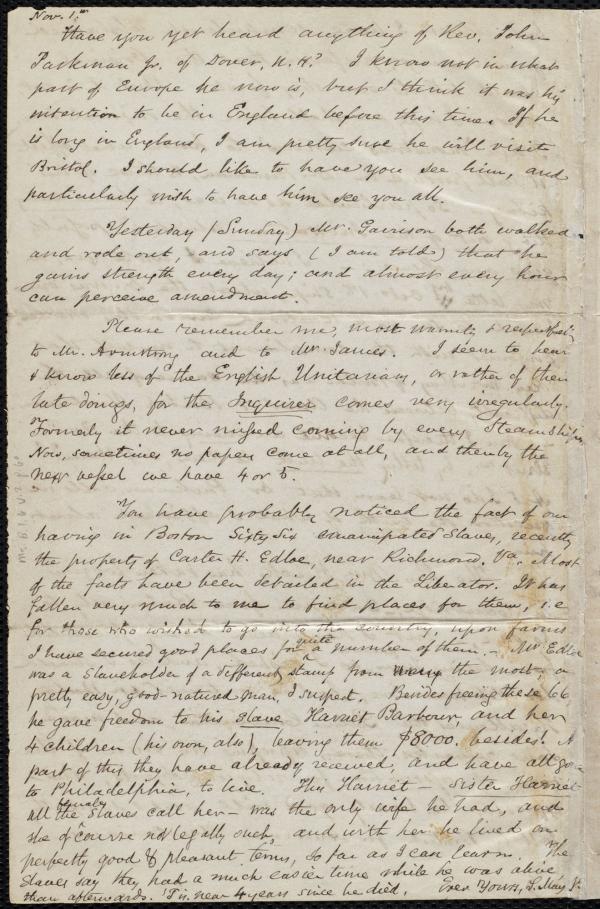 Nov. 1st
Have you yet heard anything of Rev. John
Parkman Jr. of Dover, N.H? I know not in what
part of Europe he now is, but I think it was his
intention to be in England before this time. If he
is long in England, I am pretty sure he will visit
Bristol. I should like to have you see him, and
particularly wish to have him see you all.
Yesterday (Sunday) Mr. Garrison both walked
and rode out, and says (I am told) that he
gains strength every day; and almost every hour
can perceive amendment.
Please remember me, most warmly & respectfully
to Mr. Armstrong and to Mr. James. I seem to hear
& know less of the English Unitarians, or rather of their
late doings, for the Inquirer comes very irregularly.
Formerly it never missed coming by every Steamship.
Now, sometimes no papers come at all, and then by the
next vessel we have 4 or 5.
You have probably noticed the fact of our
having in Boston Sixty Six emancipated Slaves, recently
the property of Carter H. Edloe, near Richmond, Va. Most
of the facts have been detailed in the Liberator. It has
fallen very much to me to find places for them, i.e
for those who wished to go into the country, upon farms
I have secured good places for quite a number of them. – Mr Edloe
was a Slaveholder of a different stamp from the most, a
pretty easy, good-natured man, I suspect. Besides freeing these 66
he gave freedom to his slave Harriet Barbour, and her
4 children (his own, also), leaving them $8000. besides! A
part of this they have already received, and have all gone
to Philadelphia, to live. This Harriet – Sister Harriet
all the female Slaves call her – was the only wife he had, and
she of course not legally such, and with her he lived on
perfectly good & pleasant terms, so far as I can learn. The
Slaves say they had a much easier time while he was alive
than afterwards. 'Tis near 4 years since he died. Ever Yours, S. May Jr.